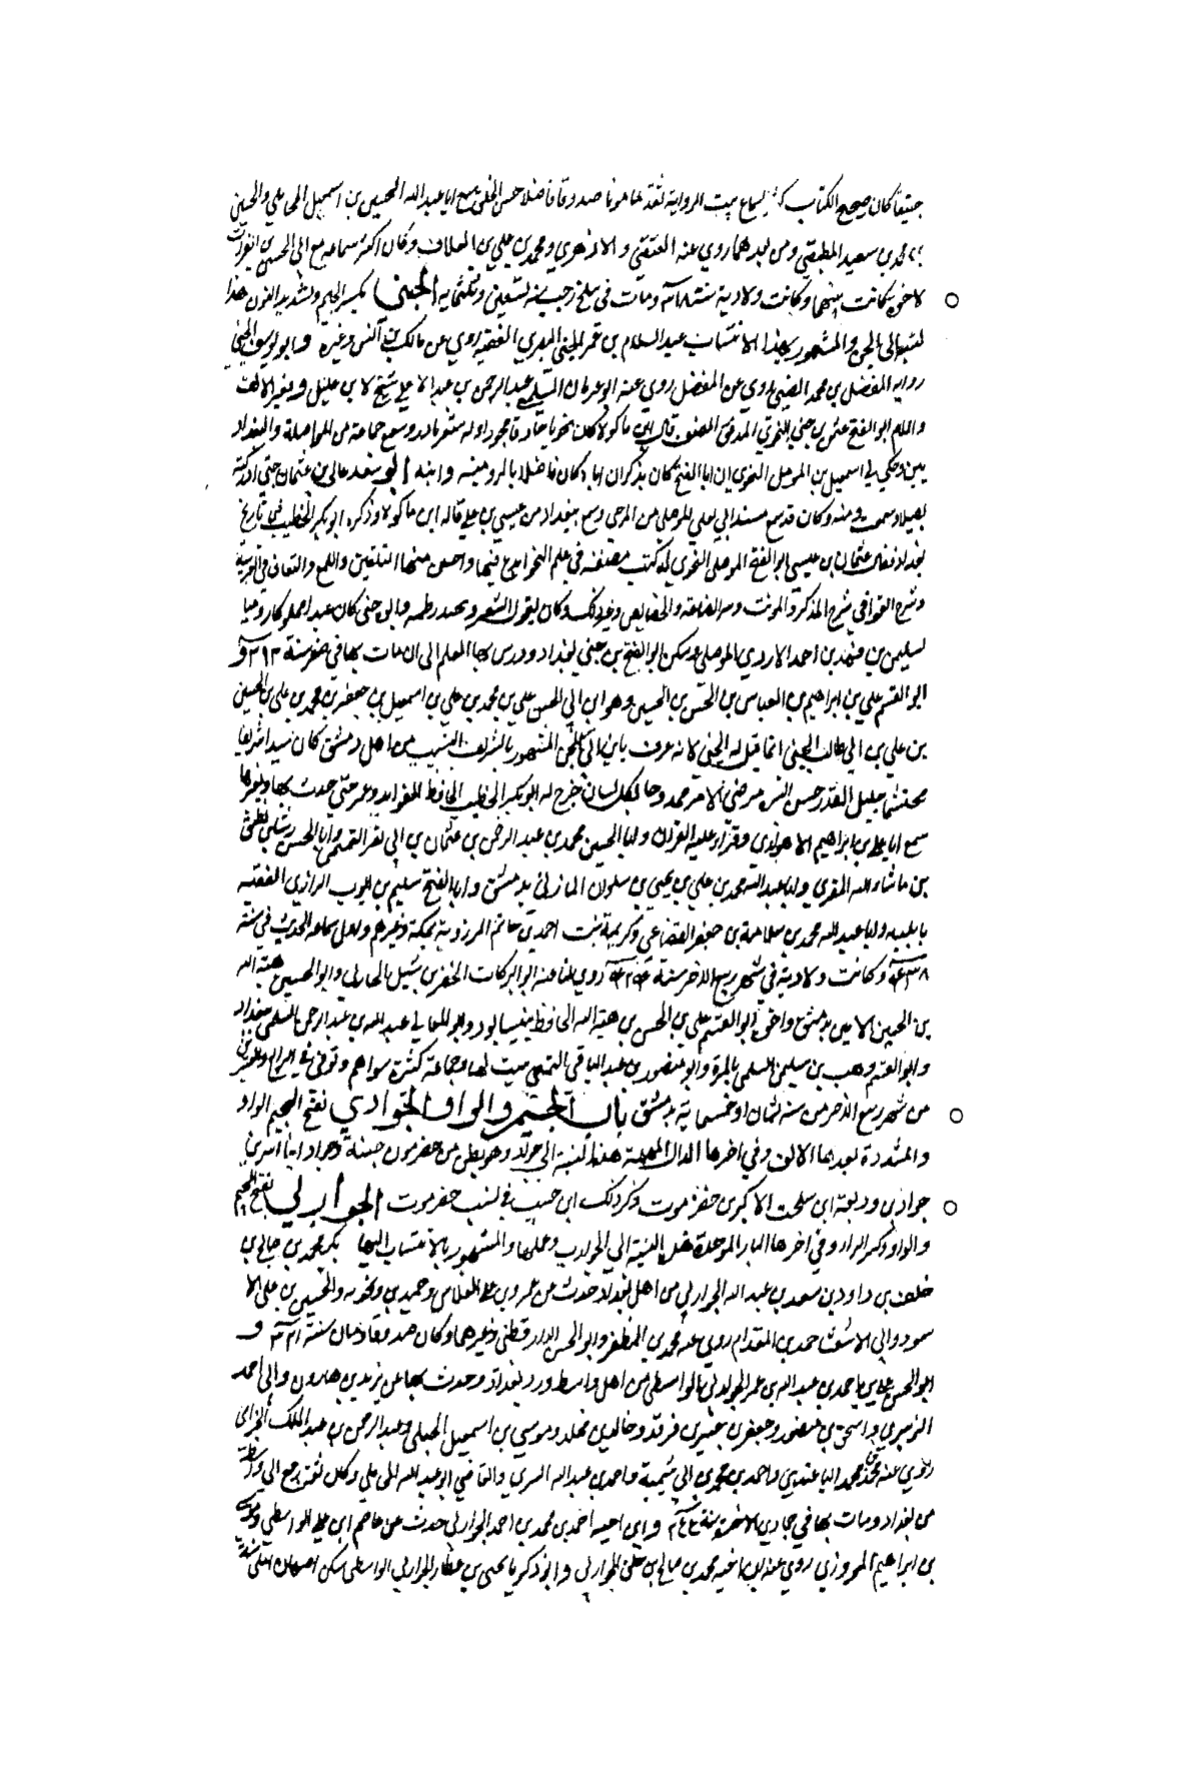 جنيقا كان صحيح الكتاب كثير السماع ثبت الرواية ثقة مامونا صدوقا فاضلا حسن الخلق سمع ابا عبد الله الحسين بن اسمعيل المحاملي والحسين
بن محمد بن سعيد المطبقي ومن بعدهما روي عنه العتيقي والازهري ومحمد بن علي بن العلاف وكان اكثر سماعه مع ابي الحسن بن الفرات
لاخوة كانت بينهما وكانت ولادته سنة ومات في سلخ رجب سنة تسعين وثلثمايه الجني بكسر الجيم وتشديد النون هذا
نسبة الى الجن والمشهور بهذا الانتساب عبد السلام بن عمر الجني البصري الفقيه روي عن مالك بن انس وغيره وابو يوسف الجني
روايه المفضل بن محمد الضبي روي عن المفضل روي عنه ابو عرفان السلمي عبد الرحمن بن عبد الاعلى شيخ لابن عليل وبغير الالف
واللام ابو الفتح عثمن بن جني النحوي المدقق المصنف قال ابن ماكولا كان نحويا حاذقا مجودا وله شعر بارد وسمع جماعة من المواصلة والبغداد
يين وحكي لي اسمعيل بن المومل النحوي ان ابا الفتح كان يذكر ان اباه كان فاضلا بالروميه وابنه ابو سعد عالي بن عثمان جني ادركته
بصيدا وسمعت منه وكان قد سمع مسند ابي يعلى الموصلي من المرجي وسمع ببغداد من عيسى بن علي قاله ابن ماكولا وذكره ابو بكر الخطيب في تاريخ
بغداد فقال عثمان بن عيسى ابو الفتح الموصلي النحوي له كتب مصنفة في علم النحو ابدع فيها واحسن منها التلقين واللمع والتعاقب في العربية
وشرح القوافي شرح المذكر والمونث وسر الصناعة والخصايص وغير ذلك وكان يقول الشعر ويجيد نظمه وابو جني كان عبدا مملوكا روميا
لسليمن بن فهد بن احمد الازدي الموصلي وسكن ابو الفتح بن جني بغداد ودرس بها العلم الى ان مات بها في صفر سنة ٣٩٢ و
ابو القسم علي بن ابراهيم بن العباس بن الحسن بن الحسين وهو ابن ابي الحسن علي بن محمد بن علي بن اسمعيل بن جعفر بن محمد بن علي بن الحسين
بن علي بن ابي طالب الجني انما قيل له الجني لانه عرف بابن ابي الجن المشهور بالشريف النسيب من اهل دمشق كان سيدا شريفا
محتشما جليل القدر حسن السيرة مرضي الامر محمودا بكل لسان خرج له ابو بكر الخطيب الحافظ الفوايد وعمر حتى حدث بها وبغيرها
سمع ابا علي بن ابراهيم الاهوازي وقرا عليه القران وابا الحسين محمد بن عبد الرحمن بن عثمان بن ابي نصر التميمي وابا الحسن رشا بن نظيف
بن ماشاء الله المقري وابا عبد الله محمد بن علي بن يحيى بن سلوان المازني بدمشق وابا الفتح سليم بن ايوب الرازي الفقيه
وابا عبد الله محمد بن سلامة بن جعفر القضاعي وكريمة بنت احمد بن حاتم المروزية بمكة وغيرهم واول سماعه الحديث في سنة
٤٣٨ وكانت ولادته في شهر ربيع الاخر سنة ٤٢٤ روي لنا عنه ابو البركات الخضر بن شبل الحارثي وابو الحسين هبة الله
بن الحسين الامين بدمشق واخوه ابو القسم علي بن الحسن بن هبة الله الحافظ بنيسابور وابو المعالي عبد الله بن عبد الرحمن السلمي ببغداد
وابو القسم وهب بن سليمن السلمي بالمزة وابو منصور بن عبد الباقي التميمي ببيت لهيا وجماعة كثيرة سواهم وتوفي في الرابع والعشرين
من شهر ربيع الاخر من سنة ثمان او خمسماية بدمشق باب الجيم والواو الجوادي بفتح الجيم الواو
والمشددة بعدها الالف وفي اخرها الدال المهملة هذه النسبة الى جواد وهو بطن من حضرمون جبنة وجواد ابنا اسرين
جوادي وديعة ابن سلخب الاكبر من حضرموت ذكر ذلك ابن حبيب في نسب حضرموت الجواربي بفتح الجيم
والواو وكسر الراء وفي اخرها الباء الموحدة هذه النسبة الى الجوارب وعملها والمشهور بالانتساب اليها بكر محمد بن صالح بن
خلف بن داود بن سعد بن عبد الله الجواربي من اهل بغداد حدث عن عمرو بن علي الفلاس وحميد بن زنجويه والحسين بن علي الا
سود وابي الاشعث احمد بن المقدام روي عنه محمد بن المظفر وابو الحسن الدارقطني وغيرهما وكان صدوقا ومات سنة ٣٢١ و
ابو الحسن علي بن احمد بن عبد الله بن عمر الجواربي الواسطي من اهل واسط ورد بغداد وحدث بها عن يزيد بن هارون وابي احمد
الزبيري واسحق بن منصور وجعفر بن جسر بن فرقد وخالد بن مخلد وموسى بن اسمعيل الجبلي وعبد الرحمن بن عبد الملك الحزامي
روي عنه محمد بن محمد الباغندي واحمد بن محمد بن ابي شيبة واحمد بن عبد الله السري والقاضي ابو عبد الله المحاملي وكان ثقة رجع الى واسط
من بغداد ومات بها في جمادى الاخرة سنة وابن اخيه احمد بن محمد بن احمد الجواربي حدث عن عاصم ابن علي الواسطي وموسى
بن ابراهيم المروزي روي عنه ابن اخيه محمد بن صالح بن خلف الجواربي وابو زكريا يحيى بن عطار الجواربي الواسطي سكن اصبهان